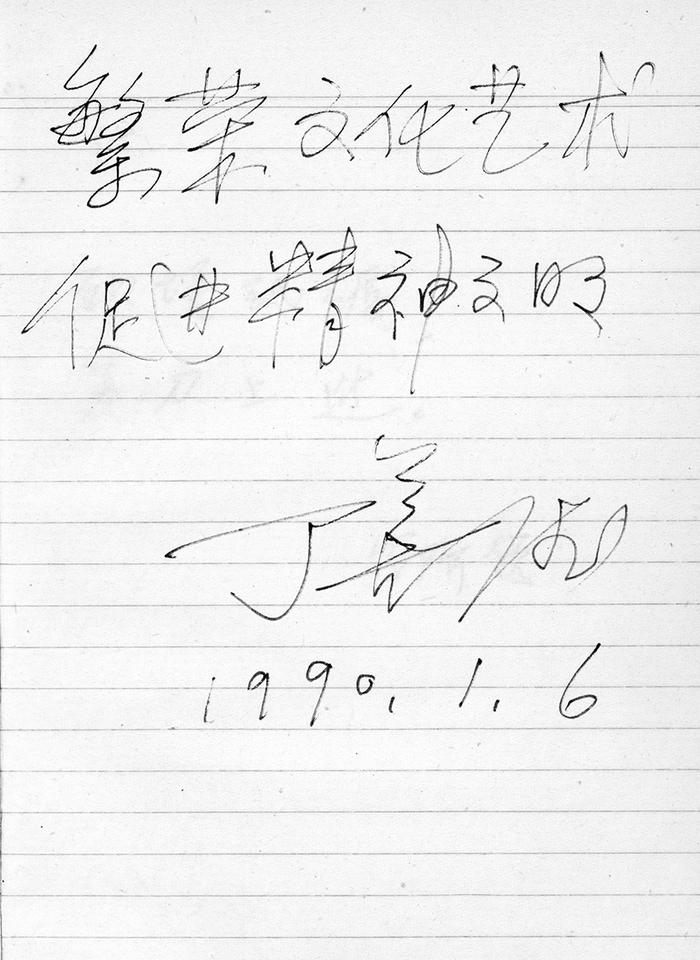 繁荣文化艺术
促进精神文明
丁善德
1990.1.6